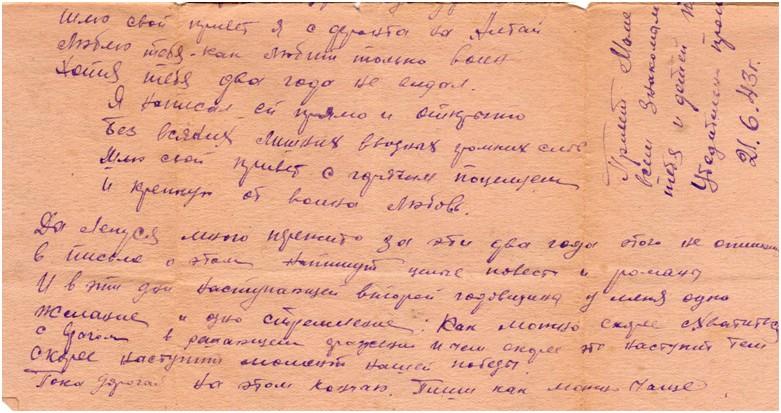 Шлю свой привет я с фронта на Алтай
Люблю тебя как любит только воин
Хотя тебя два года не видал.
Я написал ей прямо и открыто
Без всяких лишних вводных громких слов
Шлю свой привет с горячим поцелуем
И крепкую от воина Любовь.
Да Ленуся много прежито за эти два года этого не опишешь
в письме о этом напишут целые повести и романы
И в эти дни наступающей второй годовщины у меня одно
желание и одно стремление: Как можно скорее схватиться
с врагом в решающем сражении и чем скорее это наступит тем
скорее наступит момент нашей победы.
Пока дорогая на этом кончаю. Пиши как можно чаще.
Привет Маме
всем знакомым
тебя и детей
Убедительно
21.6.43г.